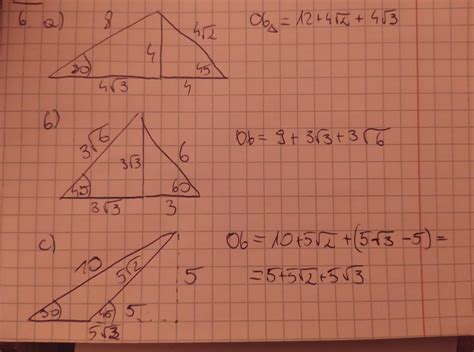 6. a)
8
4
4√2
30
45
4√3
4
Ob△ = 12+4√2 + 4√3
b)
3√6
3√3
6
45
60
3√3
3
Ob = 9 + 3√3 + 3√6
c)
10
5√2
5
30
45
5
5√3
Ob = 10+5√2 +(5√3 -5)=
=5+5√2+5√3